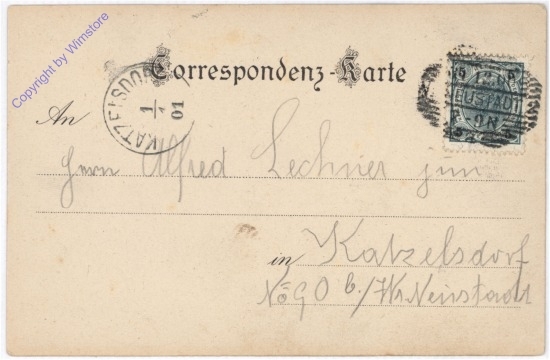 Copyright by Wimstore
Correspondenz-Karte
KATZELSDORF
1/1
01
NEUSTADT
An
Herrn Alfred Lechner jun.
in Katzelsdorf
No 90 b./Wr. Neustadt